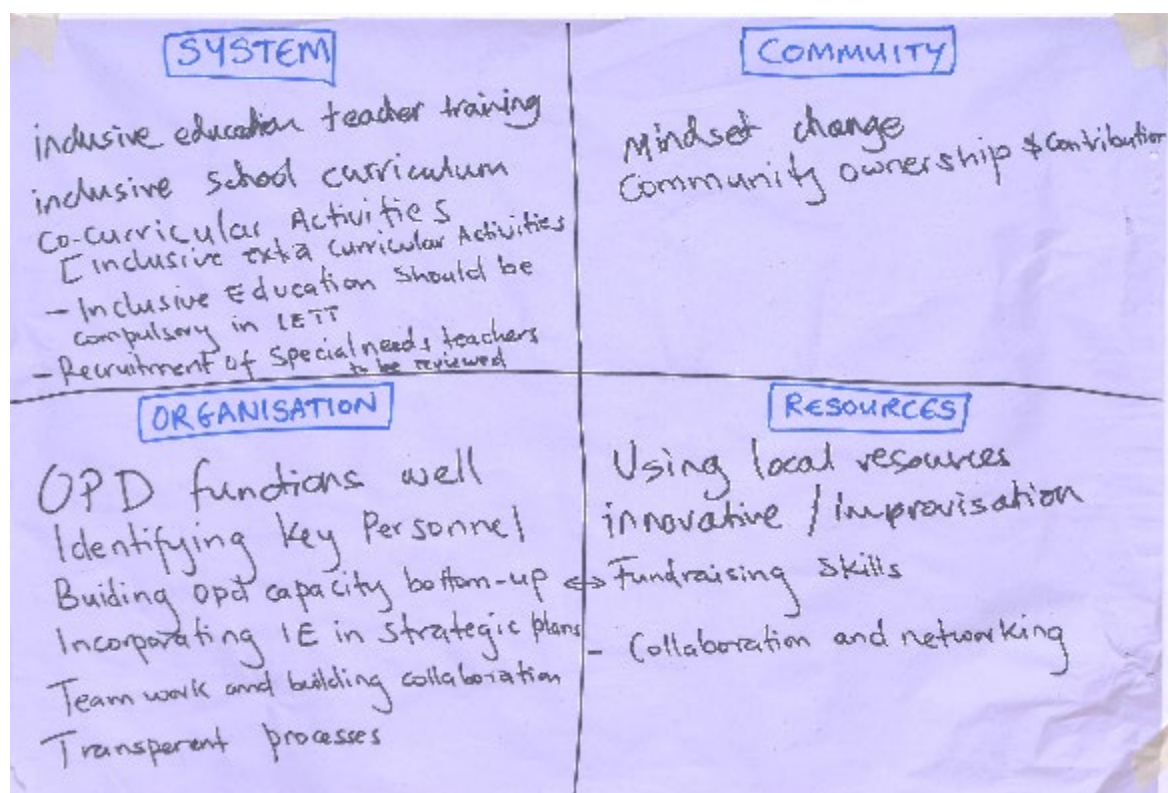 SYSTEM
inclusive education teacher training
inclusive school curriculum
Co-curricular Activities
[ inclusive exta curricular Activities
- Inclusive Education Should be
compulsory in IETT
- Recruitment of Special needs teachers
to be reviewed
COMMUITY
Mindset change
Community ownership & contribution
ORGANISATION
OPD functions well
Identifying key Personnel
Buiding opd capacity bottom-up ↔
Incorporating IE in strategic plans
Team work and building collaboration
Transperent processes
RESOURCES
Using local resources
innovative / improvisation
Fundraising skills
- Collaboration and networking